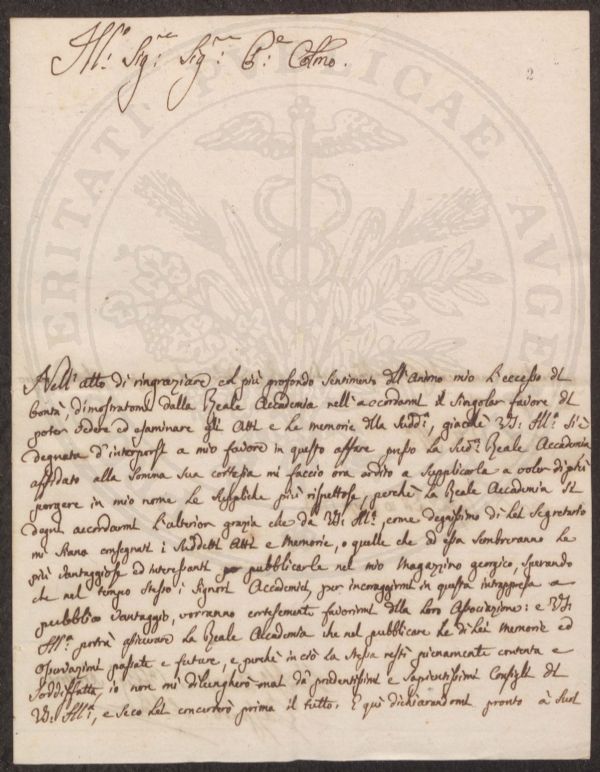 Ill:mo Sig:re Sig:re P:ne Colmo.
2
PROSPERITATI PUBLICAE AUGENDAE
Nell' atto di ringraziare col più profondo sentimento dell' animo mio l'eccesso di
bontà, dimostratomi dalla Reale Accademia nell' accordarmi il singolar favore di
poter vedere ed esaminare gli Atti e le memorie della Sudd:a, giacchè VS: Ill:ma si è
degnata d'interporsi a mio favore in questo affare presso la Sud:a Reale Accademia
affidato alla somma sua cortesia mi faccio ora ardito a supplicarla a voler di più
porgere in mio nome le suppliche più rispettose, perchè la Reale Accademia si
degni accordarmi l'ulterior grazia che da VS: Ill:ma, come degnissimo di Lei Segretario
mi siano consegnati i suddetti Atti e Memorie, o quelle che ad essa sembreranno le
più vantaggiose ed interessanti per pubblicarle nel mio Magazzino georgico, sperando
che nel tempo stesso i Signori Accademici, per incoraggirmi in questa intrappresa a
pubblico vantaggio, vorranno cortesemente favorirmi della loro Associazione: e VS:
Ill:ma potrà assicurare la Reale Accademia che nel pubblicare le di Lei memorie ed
osservazioni passate e future, e purchè in ciò la stessa resti pienamente contenta e
soddisfatta, io non mi dilungherò mai dà prudentissimi e sapientissimi Consigli di
VS: Ill:ma, e seco Lei concerterò prima il tutto. E qui dichiarandomi pronto à suoi